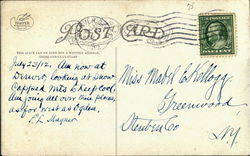 POST CARD
THIS SPACE CAN BE USED FOR A WRITTEN MESSAGE
July 22/12. Am now at
looking at snow
Capped Mts & keep cool.
Am going all over this place,
as far west as Ogden
Miss Mabel E. Kellogg
Greenwood
Steuben Co
N.Y.